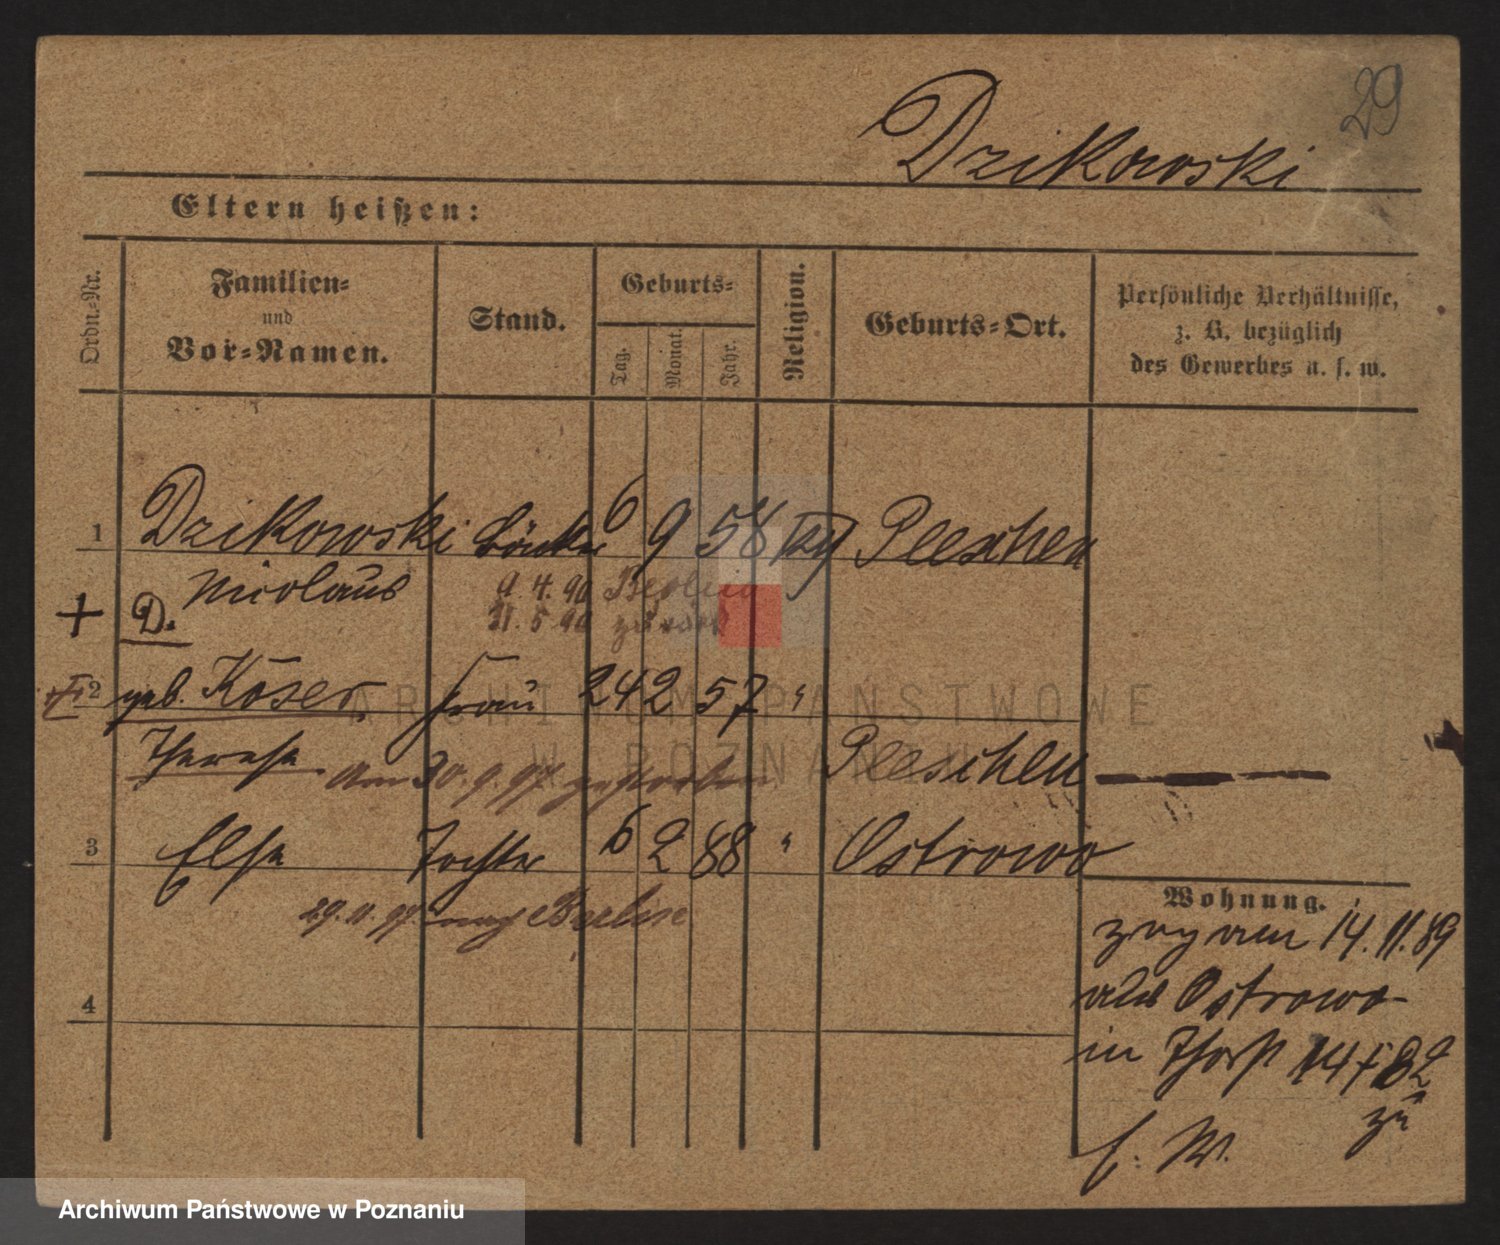 29
Dzikowski
Eltern heißen:
Ordn.-Nr.
Familien-
und
Vor-Namen.
Stand.
Geburts-
Tag.
Monat.
Jahr.
Religion.
Geburts-Ort.
Persönliche Verhältnisse,
z. B. bezüglich
des Gewerbes u. s. w.
1 Dzikowski 6 9 58 Pleschen
Nicolaus 9.4.90 Berlin
+ D. 21.5.90 zurück
2 geb. Köser Frau 24 2 57 "
Therese am 30.9.97 gestorben Pleschen
3 Else Tochter 6 2 88 " Ostrowo
29.11.97 nach Berlin
4
Wohnung.
zog am 14.11.89
aus Ostrowo
in
zu
E. W.
ARCHIWUM PAŃSTWOWE
W POZNANIU
Archiwum Państwowe w Poznaniu